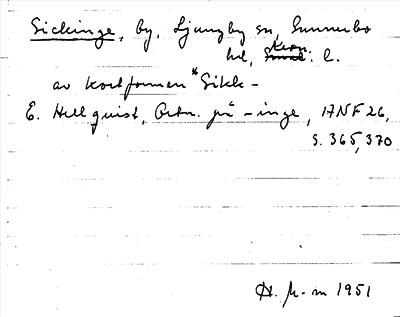 Sickinge, by, Ljungby sn, Sunnerbo
hd, Kron. l.
av kortformen *Sikk-
E. Hellquist, Ortn. på -inge, ANF 26,
s. 365, 370
1951